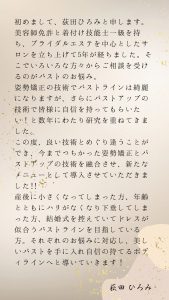 初めまして、荻田ひろみと申します。
美容師免許と着付け技能士一級を持
ち、ブライダルエステを中心としたサ
ロンを立ち上げて5年が経ちました。そ
こでいろいろな方々からご相談を受け
るのがバストのお悩み。
姿勢矯正の技術でバストラインは綺麗
になりますが、さらにバストアップの
技術で皆様に自信を持ってもらいた
い！と数年にわたり研究を重ねてきま
した。
この度、良い技術とめぐり逢うことが
でき、今までつちかった姿勢矯正とバ
ストアップの技術を融合させ、新たな
メニューとして導入させていただきま
した!!
産後に小さくなってしまった方、年齢
とともにハリがなくなり下垂してしま
った方、結婚式を控えていてドレスが
似合うバストラインを目指している
方。それぞれのお悩みに対応し、美し
いバストを手に入れ自信の持てるボデ
ィラインへと導いていきます！
荻田 ひろみ